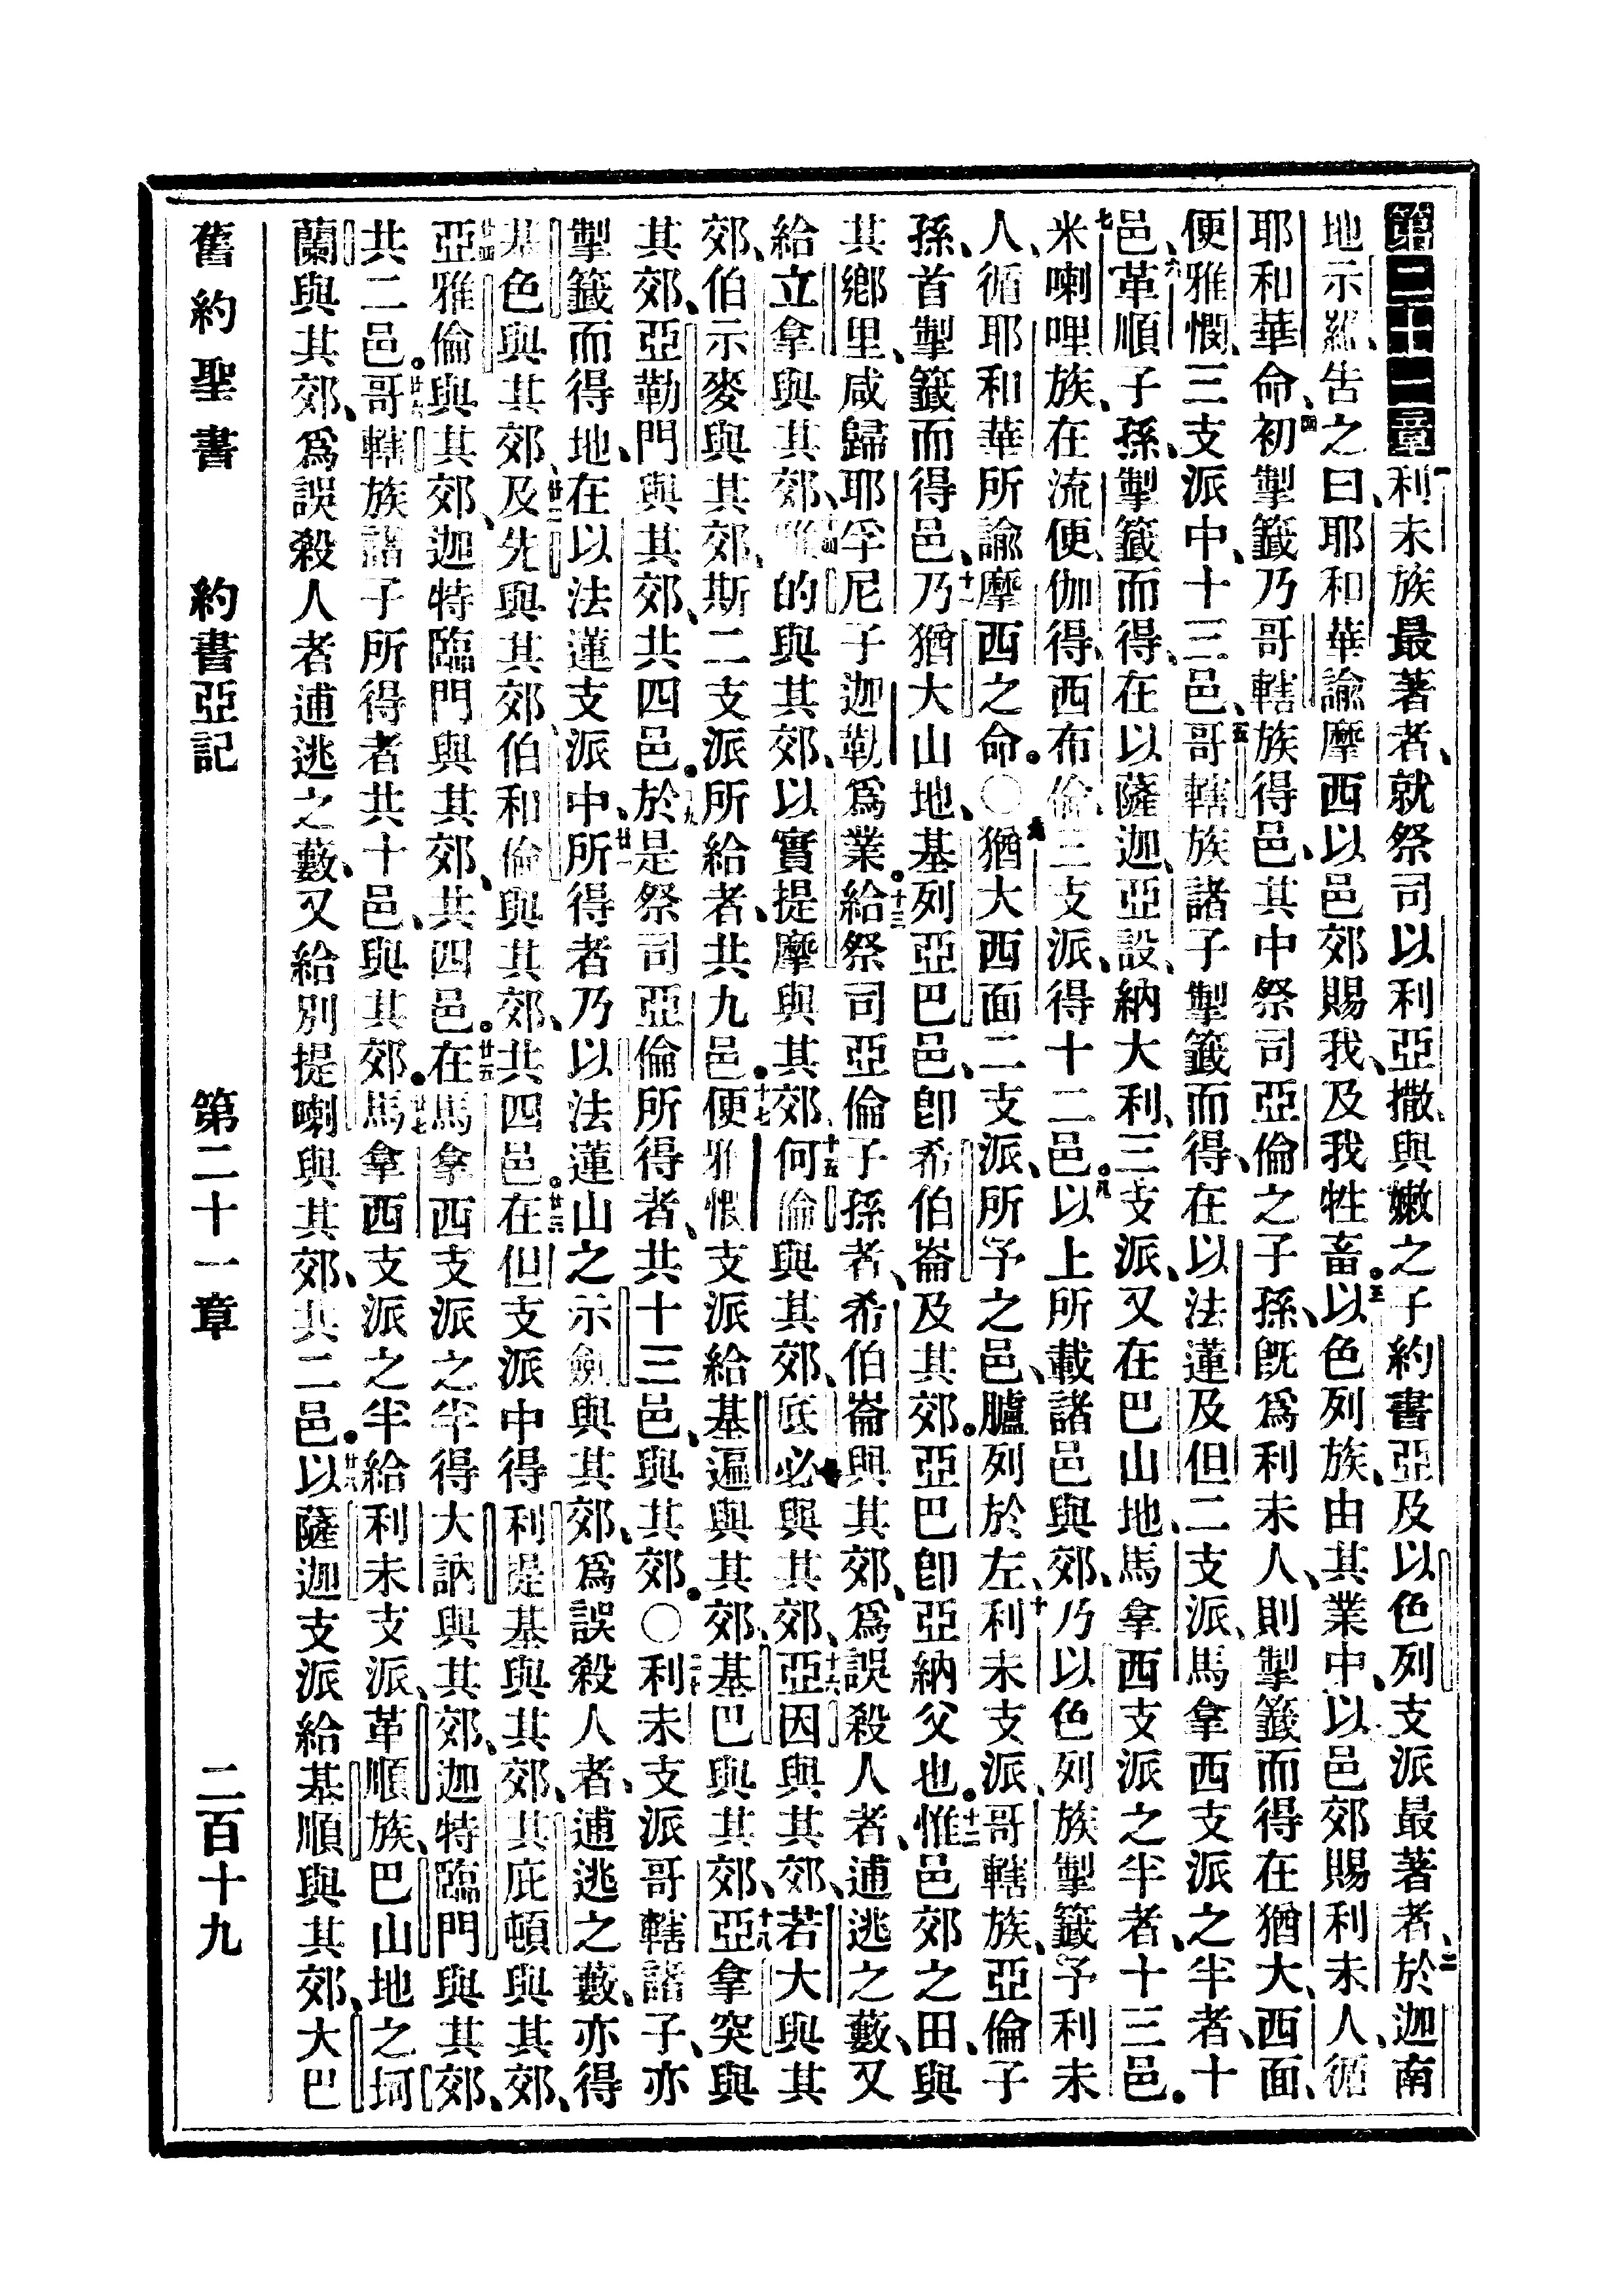 第二十一章 一利未族最著者、就祭司以利亞撒、與嫩之子約書亞、及以色列支派最著者、二於迦南
地示羅、告之曰、耶和華諭摩西以邑郊賜我、及我牲畜。三以色列族、由其業中、以邑郊賜利未人、循
耶和華命、四初掣籤乃哥轄族得邑、其中祭司亞倫之子孫、既爲利未人、則掣籤而得在猶大、西面、
便雅憫、三支派中、十三邑、五哥轄族諸子掣籤而得、在以法蓮及但二支派、馬拿西支派之半者、十
邑、六革順子孫、掣籤而得、在以薩迦、亞設、納大利、三支派、又在巴山地、馬拿西支派之半者、十三邑。
七米喇哩族、在流便、伽得、西布倫、三支派、得十二邑。八以上所載諸邑與郊、乃以色列族掣籤予利未
人、循耶和華所諭摩西之命。〇九猶大西面二支派、所予之邑、臚列於左、十利未支派、哥轄族、亞倫子
孫、首掣籤而得邑、十一乃猶大山地、基列亞巴邑、卽希伯崙及其郊。亞巴卽亞納父也。十二惟邑郊之田、與
其鄉里、咸歸耶孚尼子迦勒爲業。十三給祭司亞倫子孫者、希伯崙與其郊、爲誤殺人者、逋逃之藪、又
給立拿與其郊、十四雅的與其郊、以實提摩與其郊、十五何倫與其郊、底必與其郊、十六亞因與其郊、若大與其
郊、伯示麥與其郊、斯二支派所給者、共九邑。十七便雅憫支派給基遍與其郊、基巴與其郊、十八亞拿突與
其郊、亞勒門與其郊、共四邑。十九於是祭司亞倫所得者、共十三邑、與其郊。〇二十利未支派哥轄諸子、亦
掣籤而得地、在以法蓮支派中、廿一所得者乃以法蓮山之示劍與其郊、爲誤殺人者、逋逃之藪、亦得
基色與其郊、廿二及先與其郊、伯和倫與其郊、共四邑。廿三在但支派中得利提基與其郊、其庇頓與其郊、
廿四亞雅倫與其郊、迦特臨門與其郊、共四邑。廿五在馬拿西支派之半得大訥與其郊、迦特臨門與其郊、
共二邑。廿六哥轄族諸子所得者共十邑、與其郊。廿七馬拿西支派之半給利未支派、革順族、巴山地之坷
蘭與其郊、爲誤殺人者逋逃之藪、又給別提喇與其郊、共二邑。廿八以薩迦支派給基順與其郊、大巴
舊約聖書 約書亞記 第二十一章 二百十九